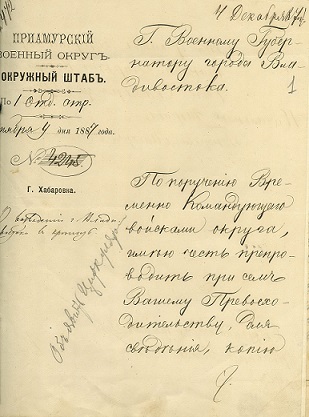 4 Декабря
ПРИАМУРСКІЙ
ВОЕННЫЙ ОКРУГЪ
ОКРУЖНЫЙ ШТАБЪ.
По 1 Отд. стр.
4 дня 188 года.
№ 4248
Г. Хабаровка.
Г. Военному Губер-
натору города Вла-
дивостока.
1
По порученію Вре-
менно Командующаго
войсками округа,
имѣю честь препро-
водить при семъ
Вашему Превосхо-
дительству, для
свѣдѣнія, копію